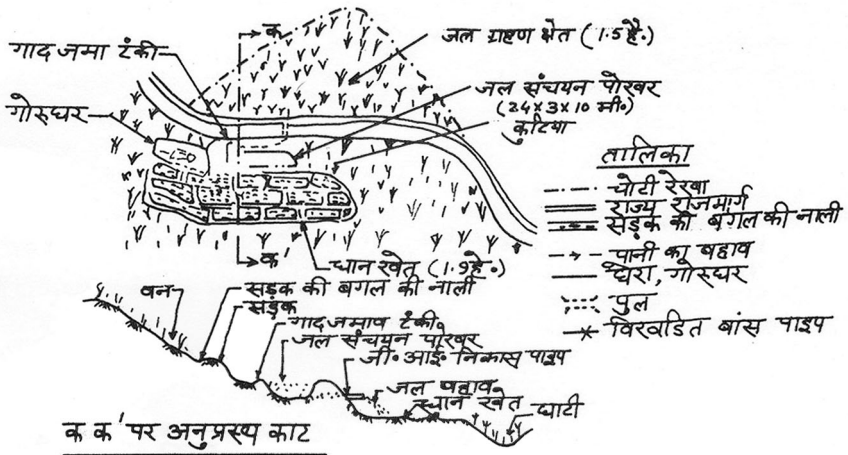 क
जल ग्रहण क्षेत (1.5 है.)
गाद जमा टंकी
जल संचयन पोखर
(24x3x10 मी.)
गोरुघर
कुटिया
130
तालिका
चोटी रेखा
राज्य राजमार्ग
सड़क की बगल की नाली
पानी का बहाव
घेरा, गोरुघर
पुल
विखंडित बांस पाइप
क'
धान खेत (1.9 है.)
वन
सड़क की बगल की नाली
सड़क
गाद जमाव टंकी
जल संचयन पोखर
जी. आई. निकास पाइप
जल बहाव
धान खेत
घाटी
क क' पर अनुप्रस्थ काट